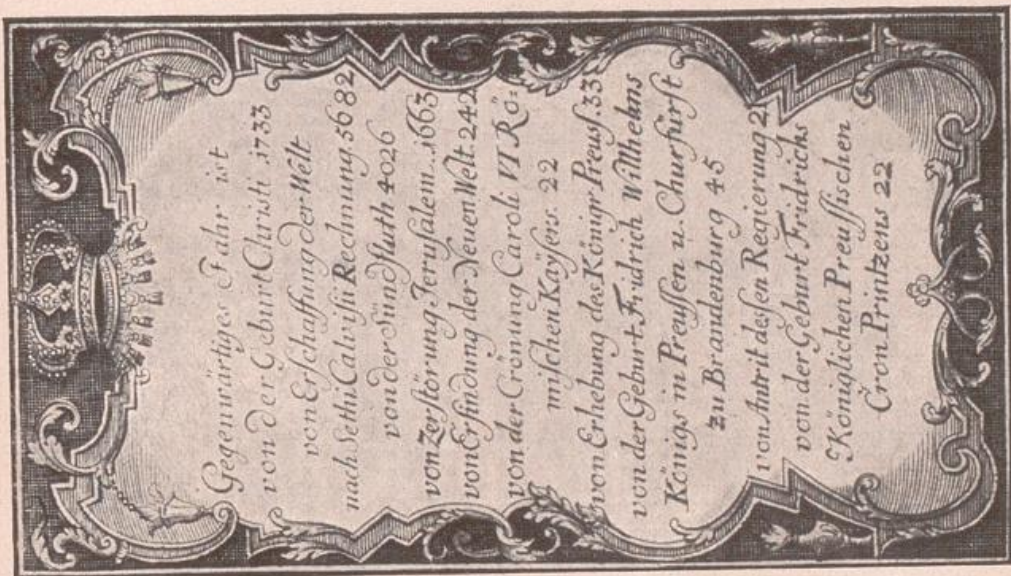 Gegenwärtiges Jahr ist
von der Geburt Christi .1733
von Erschaffung der Welt
nach Sethi Calvisii Rechnung 5682
von der Sündfluth 4026
von Zerstörung Jerusalem...1663
von Erfindung der Neuen Welt. 242
von der Crönung Caroli VI Rö:
mischen Kaÿsers. 22
von Erhebung des Königr Preuss. 33
von der Geburt. Fridrich Willhelms
Königs in Preussen u. Churfürst
zu Brandenburg 45
von Antrit dessen Regierung 21
von der Geburt Fridrichs
Königlichen Preussischen
Cron Printzens 22